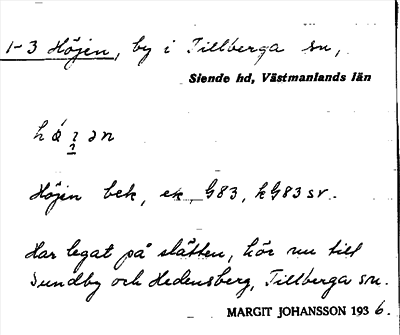 1-3 Höjen, by i Tillberga sn,
Siende hd, Västmanlands län
Höjen bek, ek, G83, kG83 sv.
Har legat på slätten, hör nu till
Sundby och Hedensberg, Tillberga sn.
MARGIT JOHANSSON 1936.